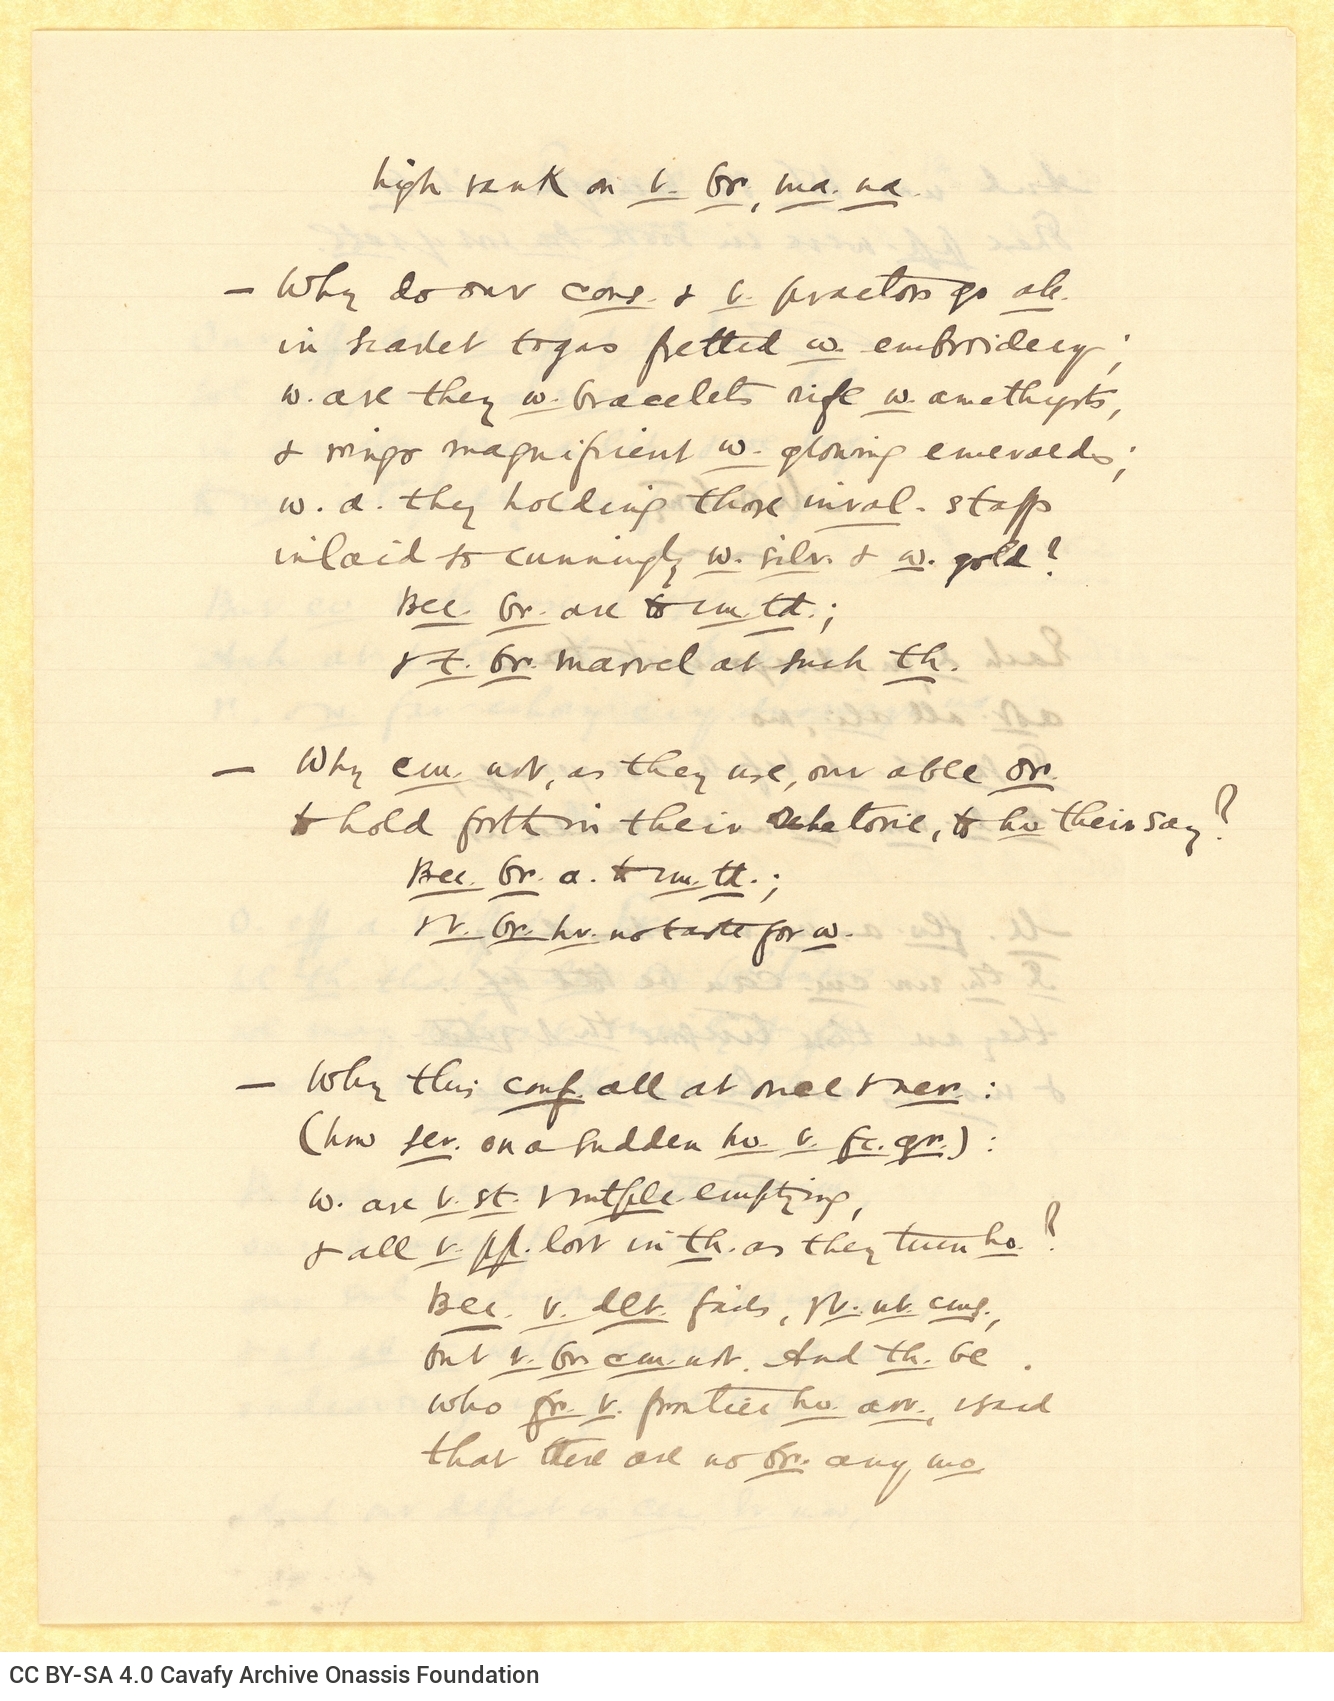 high rank on t. br, ma. na.
– Why do our cons. & t. praetors go ab.
in scarlet togas fretted w. embroidery;
w. are they w. bracelets rife w. amethysts,
& rings magnificent w. glowing emeralds;
w. a. they holding those inval. staffs
inlaid so cunningly w. silv. & w. gold?
Bec. br. are to cm. td.;
& t. br. marvel at such th.
– Why cm. not, as they use, our able or.
to hold forth in their rhetoric, to hv their say?
Bec. br. a. to cm. td.;
& t. br. hv. no taste for w.
– Why this conf. all at once & ner.:
(how ser. on a sudden hv. t. fc. gr.):
w. are t. st. & mtple emptying,
& all t. pp. lost in th. as they turn ho. ?
Bec. t. dlt. fails, & t. nt. cms.,
but t. br. cm. not. And th. be
who fr. t. frontier hv. arr., & said
that there are no br. any mo
CC BY-SA 4.0 Cavafy Archive Onassis Foundation